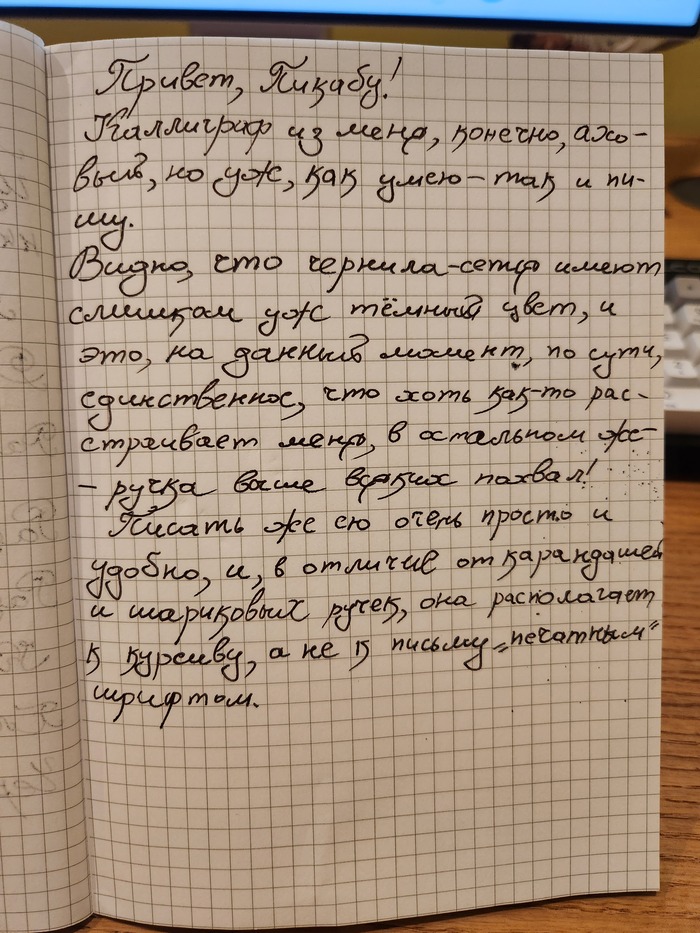 Привет, Пикабу!
Каллиграф из меня, конечно, ахо-
вый, но уж, как умею - так и пи-
шу.
Видно, что чернила-сетф имеют
слишком уж тёмный цвет, и
это, на данный момент, по сути,
единственное, что хоть как-то рас-
страивает меня, в остальном же-
- ручка выше всяких похвал!
Писать же ею очень просто и
удобно, и, в отличие от карандашей
и шариковых ручек, она располагает
к курсиву, а не к письму „печатным"
шрифтом.